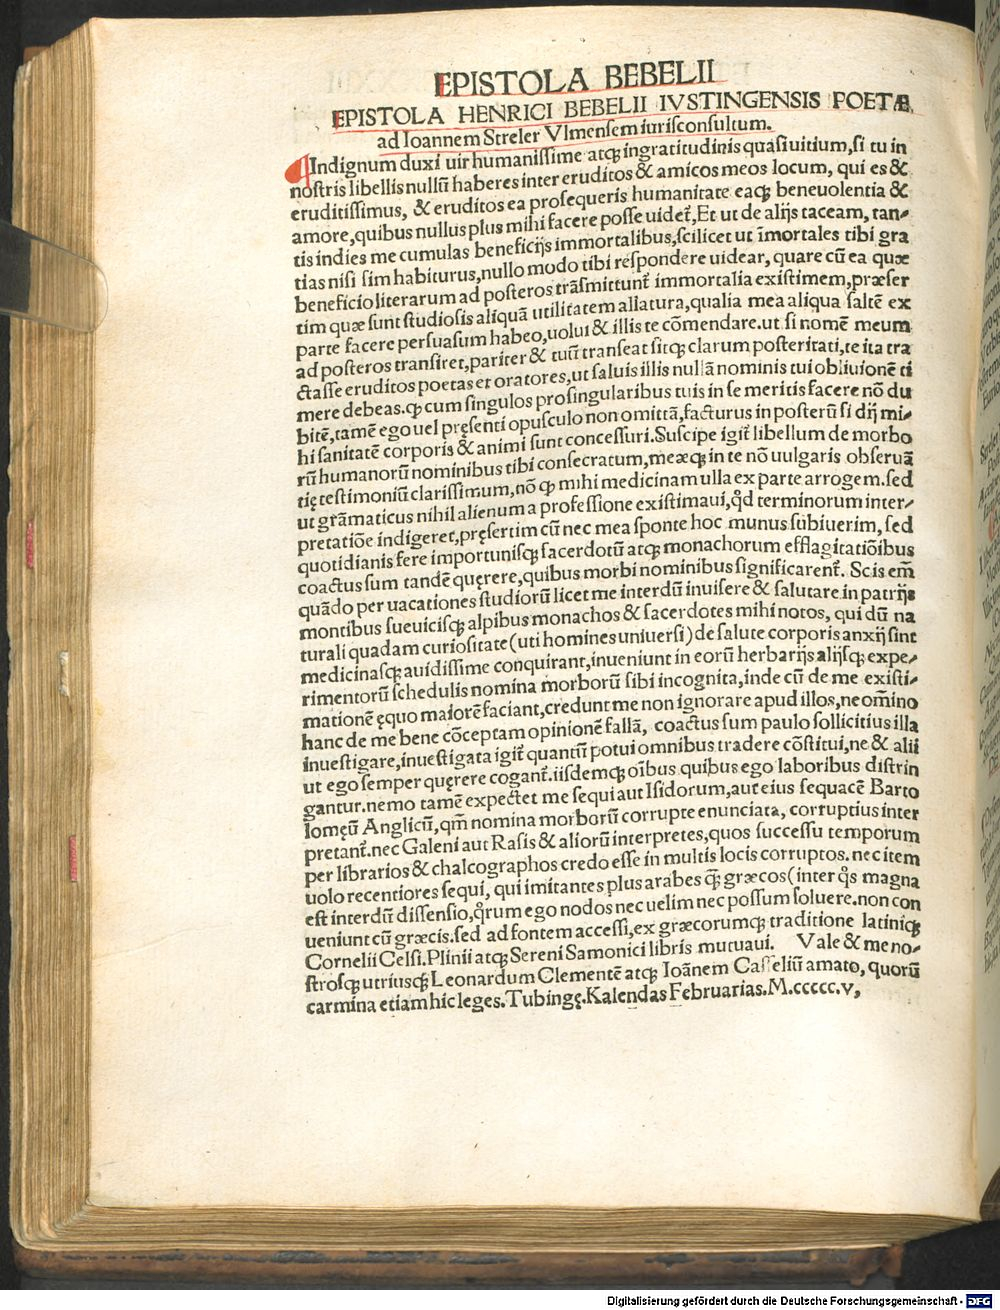 EPISTOLA BEBELII
EPISTOLA HENRICI BEBELII IVSTINGENSIS POETÆ
ad Ioannem Streler Vlmensem iurisconsultum.
Indignum duxi uir humanissime atqꝫ ingratitudinis quasi uitium, si tu in
nostris libellis nullũ haberes inter eruditos & amicos meos locum, qui es &
eruditissimus, & eruditos ea prosequeris humanitate eaqꝫ beneuolentia &
amore, quibus nullus plus mihi facere posse uidet̃, Et ut de alijs taceam, tan-
tis indies me cumulas beneficijs immortalibus, scilicet ut ĩmortales tibi gra
tias nisi sim habiturus, nullo modo tibi respondere uidear, quare cũ ea quæ
beneficio literarum ad posteros trãsmittunt̃ immortalia existimem, præser
tim quæ sunt studiosis aliquã utilitatem allatura, qualia mea aliqua saltẽ ex
parte facere persuasum habeo, uolui & illis te cõmendare. ut si nomẽ meum
ad posteros transiret, pariter & tuũ transeat sitqꝫ clarum posteritati, te ita tra
ctasse eruditos poetas et oratores, ut saluis illis nullã nominis tui obliuionẽ ti
mere debeas. qꝫ cum singulos pro singularibus tuis in se meritis facere nõ du
bitẽ, tamẽ ego uel pręsenti opusculo non omittã, facturus in posterũ si dij mi-
hi sanitatẽ corporis & animi sunt concessuri. Suscipe igit̃ libellum de morbo
rũ humanorũ nominibus tibi consecratum, meæqꝫ in te nõ uulgaris obseruã
tię testimoniũ clarissimum, nõ qꝫ mihi medicinam ulla ex parte arrogem. sed
ut grãmaticus nihil alienum a professione existimaui, qd̾ terminorum inter-
pretatiõe indigeret, pręsertim cũ nec mea sponte hoc munus subiuerim, sed
quotidianis fere importunisqꝫ sacerdotũ atqꝫ monachorum efflagitatiõibus
coactus sum tandẽ quęrere, quibus morbi nominibus significarent̃. Scis em̃
quãdo per uacationes studiorũ licet me interdũ inuisere & salutare in patrijs
montibus sueuicisqꝫ alpibus monachos & sacerdotes mihi notos, qui dũ na
turali quadam curiositate (uti homines uniuersi) de salute corporis anxij sint
medicinasqꝫ auidissime conquirant, inueniunt in eorũ herbarijs alijsqꝫ expe-
rimentorũ schedulis nomina morborũ sibi incognita, inde cũ de me existi-
mationẽ ęquo maiorẽ faciant, credunt me non ignorare apud illos, ne om̃ino
hanc de me bene cõceptam opinionẽ fallã, coactus sum paulo sollicitius illa
inuestigare, inuestigata igit̃ quantũ potui omnibus tradere cõstitui, ne & alii
ut ego semper quęrere cogant̃. iisdemqꝫ oĩbus quibus ego laboribus distrin
gantur. nemo tamẽ expectet me sequi aut Isidorum, aut eius sequacẽ Barto
lomęũ Anglicũ, qm̃ nomina morborũ corrupte enunciata, corruptius inter
pretant̃. nec Galeni aut Rasis & aliorũ interpretes, quos successu temporum
per librarios & chalcographos credo esse in multis locis corruptos. nec item
uolo recentiores sequi, qui imitantes plus arabes qꝫ̃ græcos (inter qͦs magna
est interdũ dissensio, qͦrum ego nodos nec uelim nec possum soluere. non con
ueniunt cũ græcis. sed ad fontem accessi, ex græcorumqꝫ traditione latiniqꝫ
Cornelii Celsi. Plinii atqꝫ Sereni Samonici libris mutuaui. Vale & me no-
strosqꝫ utriusqꝫ Leonardum Clementẽ atqꝫ Ioãnem Casseliũ amato, quorũ
carmina etiam hic leges. Tubingę. Kalendas Februarias. M.ccccc.v,
Digitalisierung gefördert durch die Deutsche Forschungsgemeinschaft - DFG